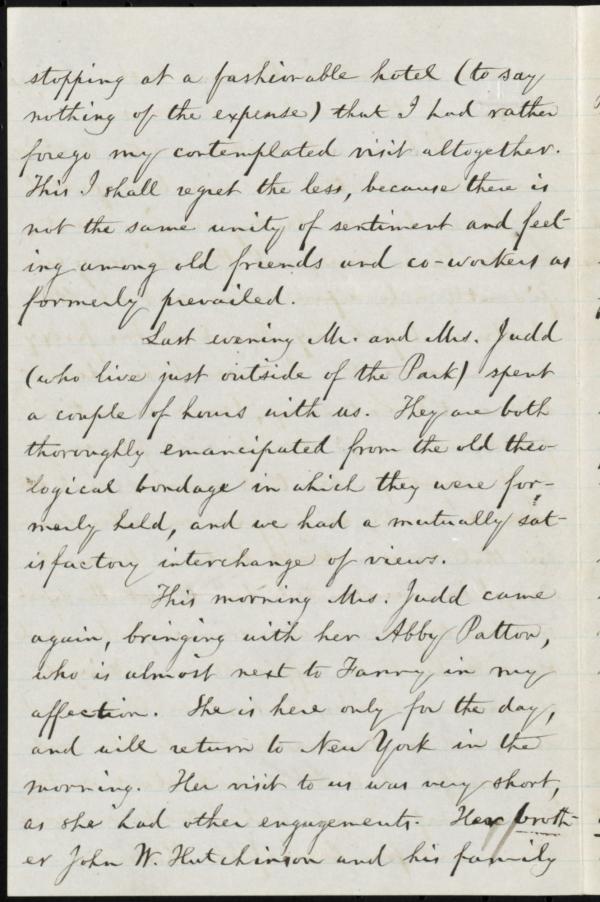 stopping at a fashionable hotel (to say
nothing of the expense) that I had rather
forego my contemplated visit altogether.
This I shall regret the less, because there is
not the same unity of sentiment and feel-
ing among old friends and co-workers as
formerly prevailed.
Last evening Mr. and Mrs. Judd
(who live just outside of the Park) spent
a couple of hours with us. They are both
thoroughly emancipated from the old theo-
logical bondage in which they were for-
merly held, and we had a mutually sat-
isfactory interchange of views.
This morning Mrs. Judd came
again, bringing with her Abby Patton,
who is almost next to Fanny in my
affection. She is here only for the day,
and will return to New York in the
morning. Her visit to us was very short,
as she had other engagements. Her broth-
er John W. Hutchinson and his family